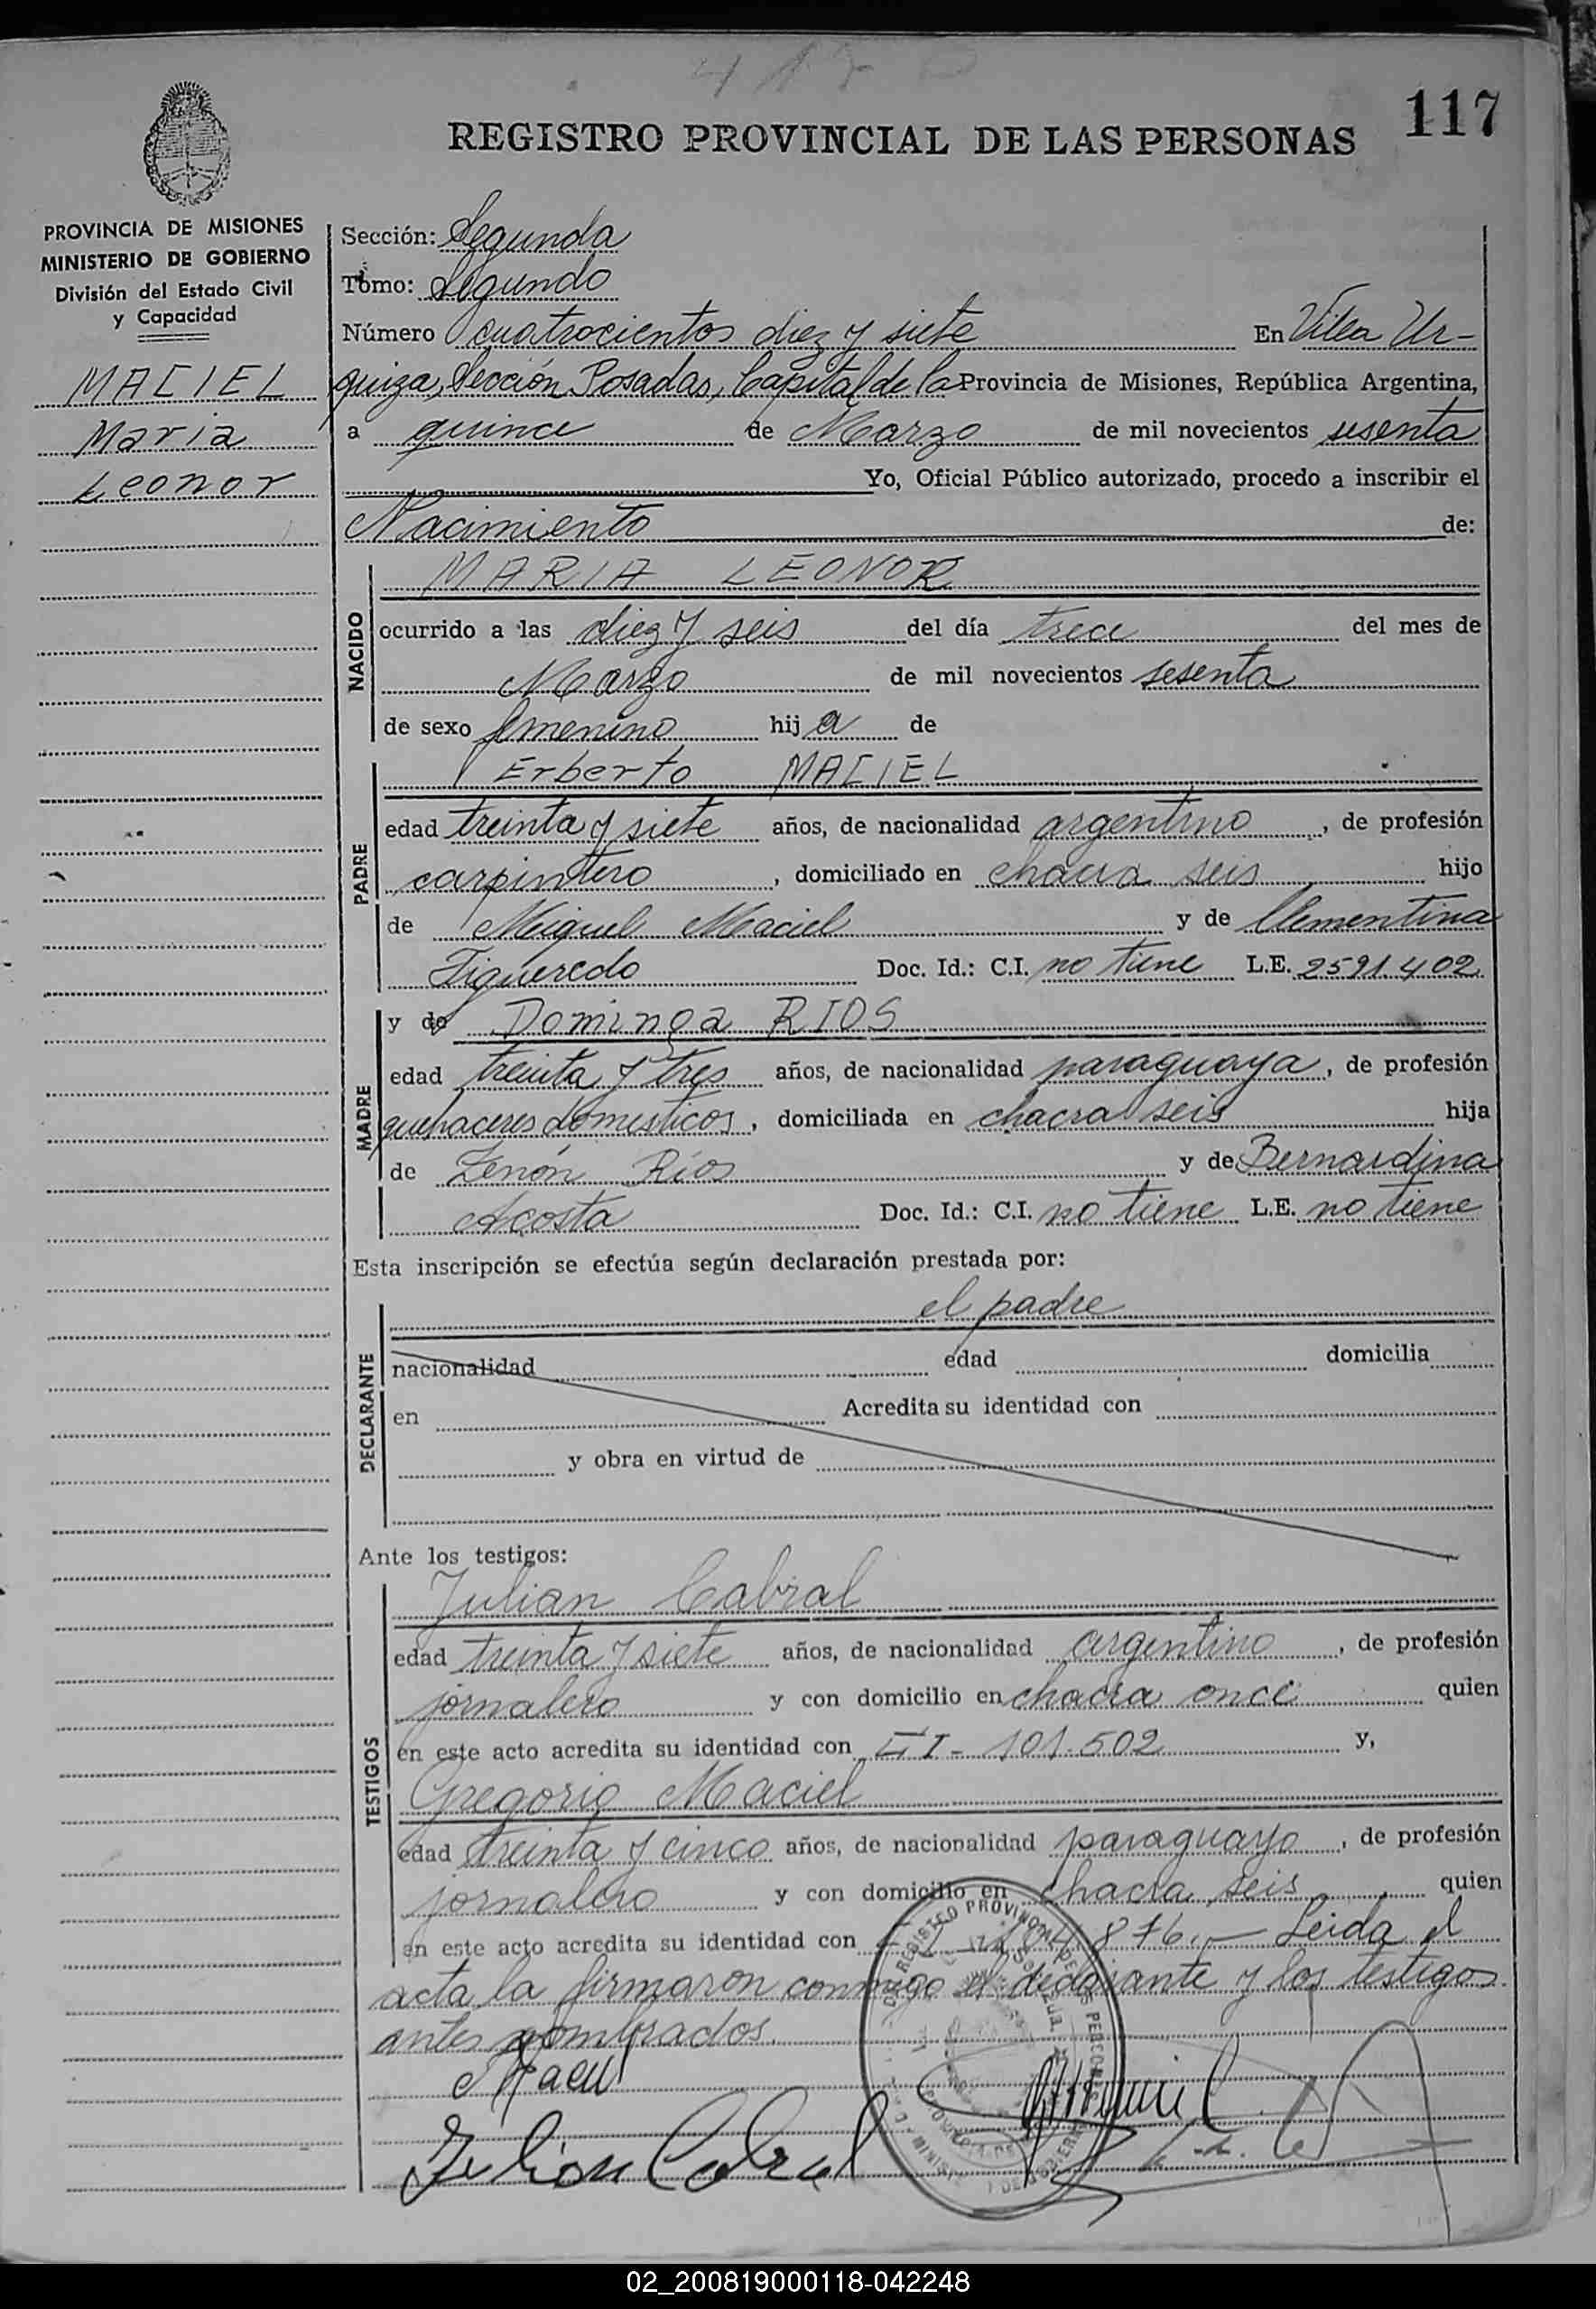 417
117
REGISTRO PROVINCIAL DE LAS PERSONAS
PROVINCIA DE MISIONES
MINISTERIO DE GOBIERNO
División del Estado Civil
y Capacidad
MACIEL
Maria
Leonor
Sección: Segunda
Tomo: Segundo
Número cuatrocientos diez y siete En Villa Ur-
quiza, Sección Posadas, Capital de la Provincia de Misiones, República Argentina,
a quince de Marzo de mil novecientos sesenta
Yo, Oficial Público autorizado, procedo a inscribir el
Nacimiento de:
NACIDO
MARIA LEONOR
ocurrido a las diez y seis del día trece del mes de
Marzo de mil novecientos sesenta
de sexo femenino hija de
PADRE
Erberto MACIEL
edad treinta y siete años, de nacionalidad argentino, de profesión
carpintero, domiciliado en chacra seis hijo
de Miguel Maciel y de Clementina
Figueredo Doc. Id.: C.I. no tiene L.E. 2591402
MADRE
y de Dominga RIOS
edad treinta y tres años, de nacionalidad paraguaya, de profesión
quehaceres domesticos, domiciliada en chacra seis hija
de Zenón Ríos y de Bernardina
Acosta Doc. Id.: C.I. no tiene L.E. no tiene
Esta inscripción se efectúa según declaración prestada por:
DECLARANTE
el padre
nacionalidad edad domicilia
en Acredita su identidad con
y obra en virtud de
Ante los testigos:
TESTIGOS
Julian Cabral
edad treinta y siete años, de nacionalidad argentino, de profesión
jornalero y con domicilio en chacra once quien
en este acto acredita su identidad con 101.502 y,
Gregorio Maciel
edad treinta y cinco años, de nacionalidad paraguayo, de profesión
jornalero y con domicilio en chacra seis quien
en este acto acredita su identidad con 876.- Leida el
acta la firmaron conmigo el declarante y los testigos
antes nombrados.
Julian Cabral
02_200819000118-042248